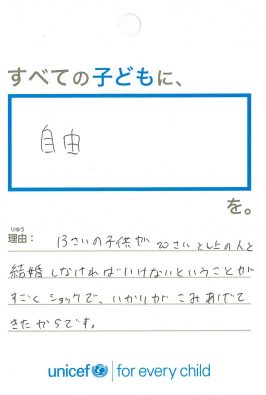 すべての子どもに、
自由
を。
りゆう
理由： 13さいの子供が 20さいとし上の人と
結婚しなければいけないということが
すごくショックで、いかりがこみあげて
きたからです。
unicef for every child